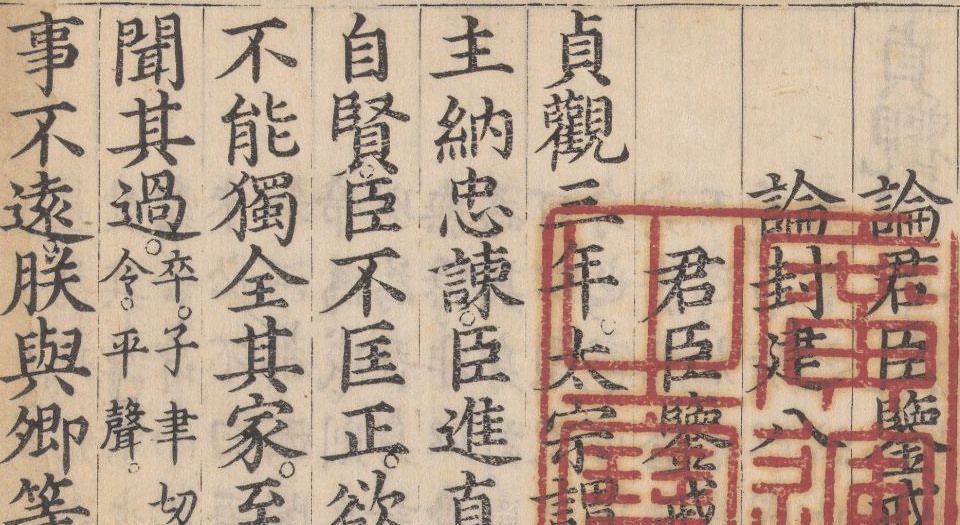 論君臣鑒戒
論封建八
君臣鑒戒
貞觀三年太宗謂
主納忠諫。臣進直
自賢。臣不匡正。欲
不能獨全其家。至
聞其過。卒。子聿切
令。平聲。
事不遠。朕與卿等